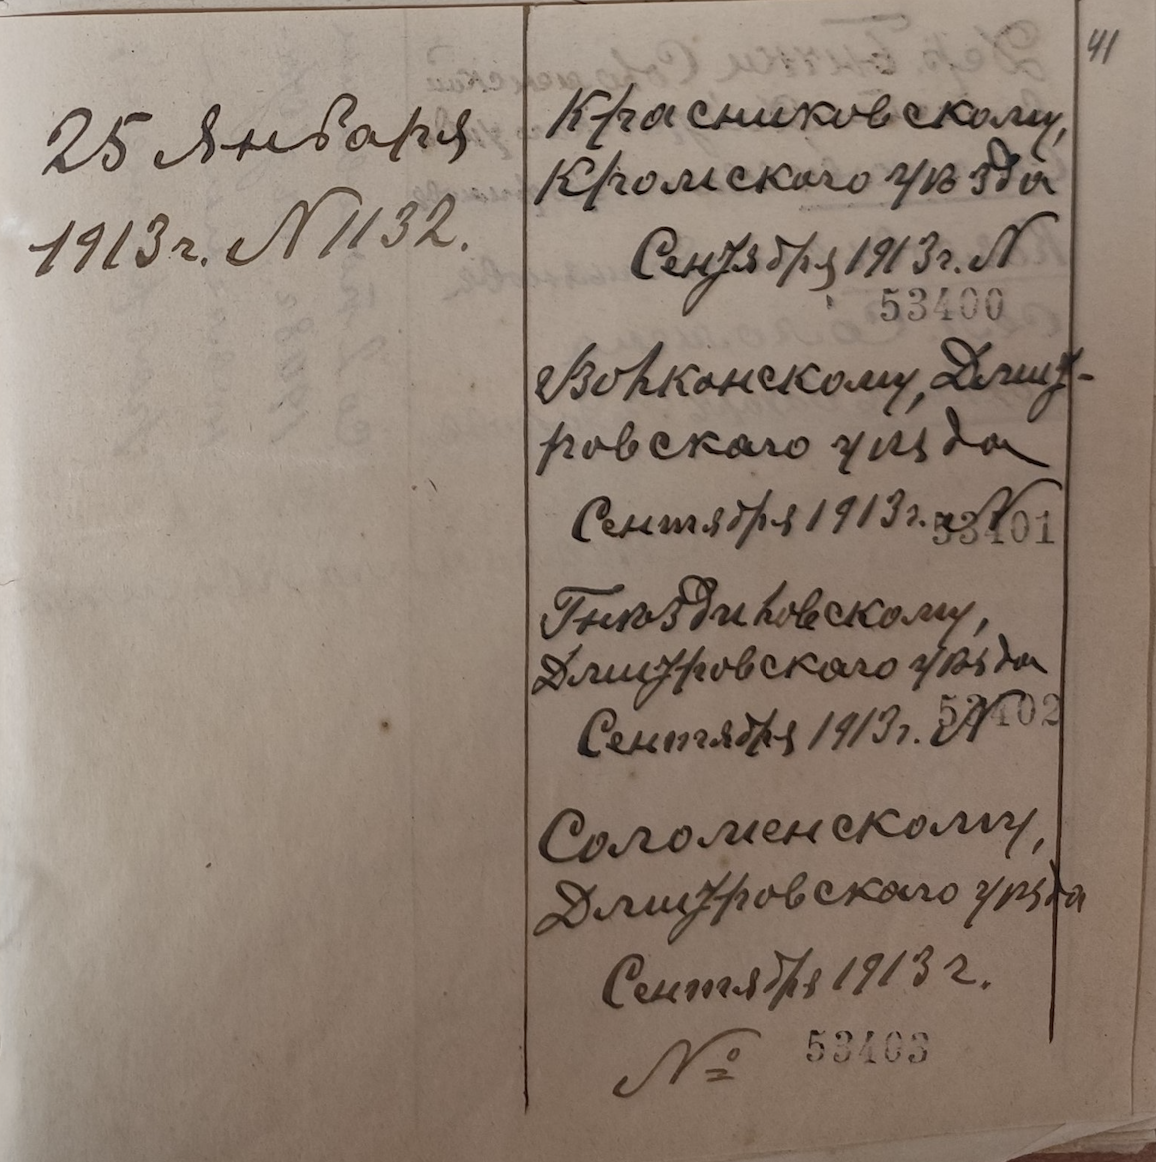 41
25 Января
1913 г. N 1132.
Красниковскому,
Кромского уѣзда
Сентября 1913 г. N
53400
Волконскому, Дмит-
ровскаго уѣзда
Сентября 1913 г. N
53401
Гнѣздиловскому,
Дмитровскаго уѣзда
Сентября 1913 г. N
53402
Соломенскому,
Дмитровскаго уѣзда
Сентября 1913 г.
№ 53403